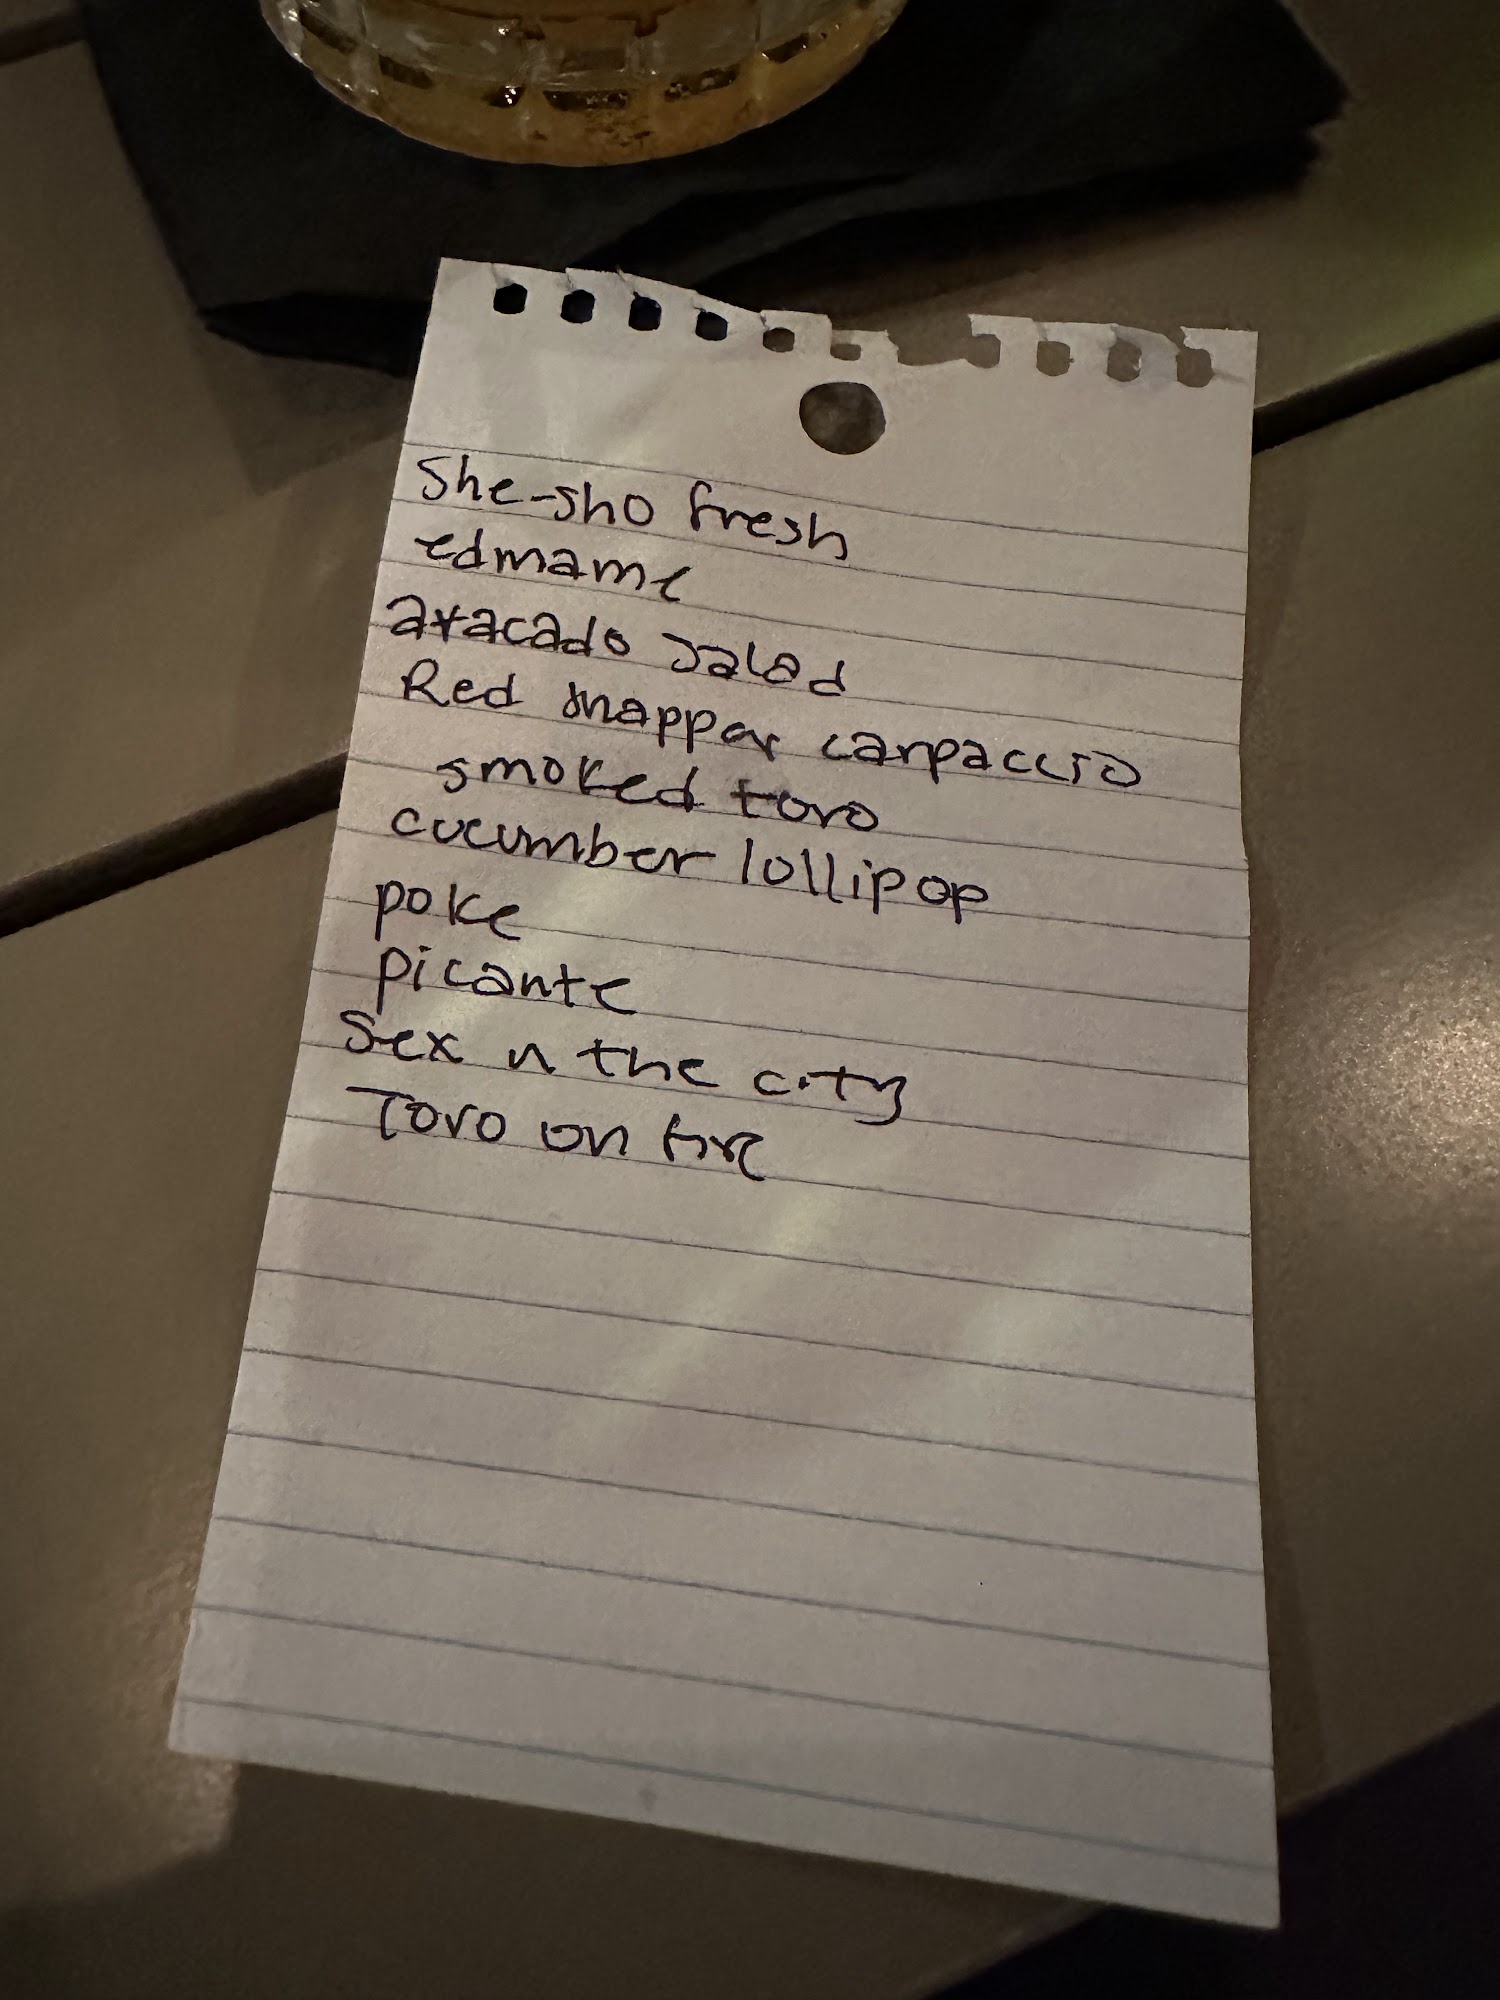 She-sho fresh
edmame
avacado salad
Red snapper carpaccio
smoked toro
cucumber lollipop
poke
picante
Sex n the city
Toro on fire